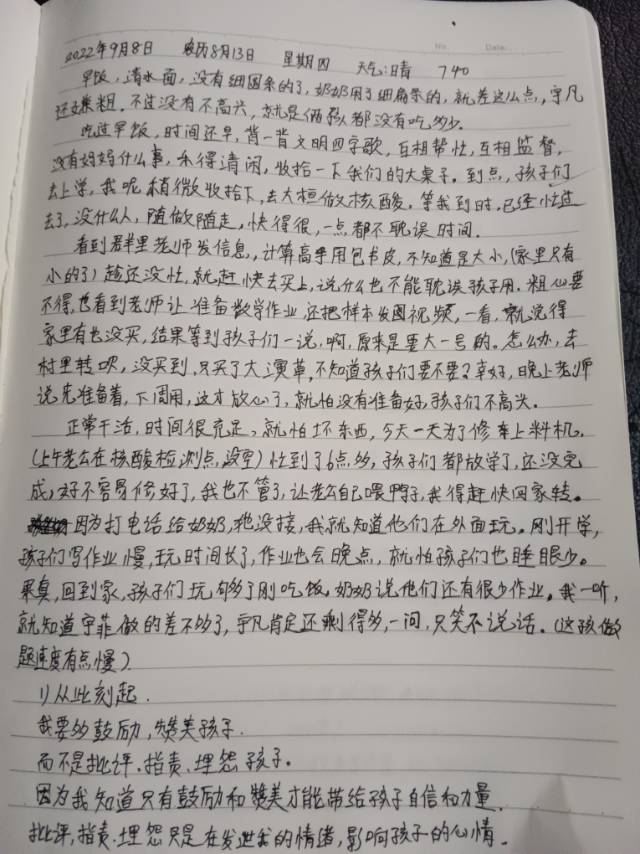 No. Date.
2022年9月8日 农历8月13日 星期四 天气:晴 740
早饭,清水面,没有细圆条的了,奶奶用了细扁条的,就差这么点,宇凡
还嫌粗。不过没有不高兴,就是俩孩都没有吃多少。
吃过早饭,时间还早,背一背文明四字歌,互相帮忙,互相监督,
没有妈妈什么事,乐得清闲,收拾一下我们的大桌子。到点,孩子们
去上学,我呢稍微收拾下,去大桓做核酸。等我到时,已经忙过
去了,没什么人,随做随走,快得很,一点都不耽误时间。
看到群里老师发信息,计算高手用包书皮,不知道是大小,(家里只有
小的了)趁还没忙,就赶快去买上,说什么也不能耽误孩子用。粗心要
不得,也看到老师让准备数学作业,还把样本发图视频,一看,就说得
家里有长没买,结果等到孩子们一说,啊,原来是要大一号的。怎么办,去
村里转呗,没买到,只买了大演草,不知道孩子们要不要?幸好,晚上老师
说先准备着,下周用,这才放心了,就怕没有准备好,孩子们不高兴。
正常干活,时间很充足,就怕坏东西,今天一天为了修车上料机,
(上午老公在核酸检测点,没空)忙到了6点多,孩子们都放学了,还没完
成,好不容易修好了,我也不管了,让老公自己喂鸭子,我得赶快回家转。
因为打电话给奶奶,她没接,我就知道他们在外面玩。刚开学,
孩子们写作业慢,玩时间长了,作业也会晚点,就怕孩子们也睡眠少。
果真,回到家,孩子们玩够了刚吃饭,奶奶说他们还有很少作业。我一听,
就知道宇菲做的差不多了,宇凡肯定还剩得多,一问,只笑不说话。(这孩做
题速度有点慢)
1)从此刻起.
我要多鼓励,赞美孩子.
而不是批评.指责.埋怨孩子。
因为我知道只有鼓励和赞美才能带给孩子自信和力量.
批评,指责.埋怨只是在发泄我的情绪,影响孩子的心情.